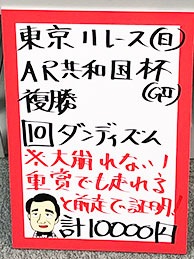 東京11レース(日)
AR共和国杯
(GⅡ)
複勝
10 ダンディズム
※大崩れない!
重賞でも走れる
と前走で証明!
計10000円